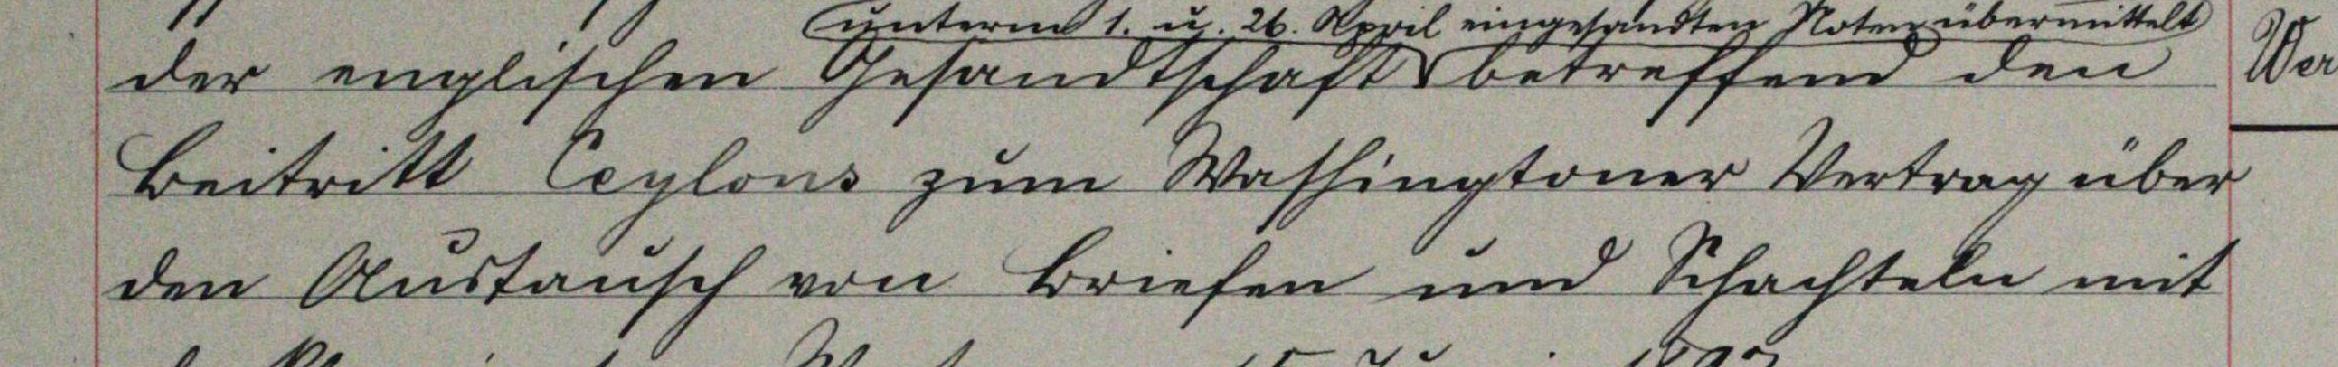 unterm 1. u. 26. April eingesandten Noten übermittelt
der englischen Gesandtschaft betreffend den
Beitritt Ceylons zum Washingtoner Vertrag über
den Austausch von Briefen und Schachteln mit